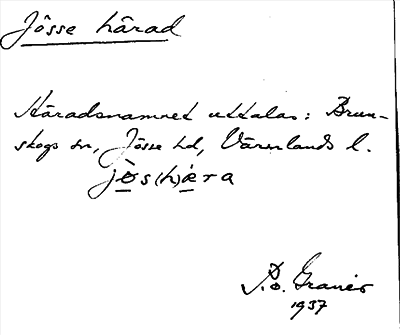 Jösse härad
Häradsnamnet uttalas: Brun-
skogs sn, Jösse hd, Värmlands l.
jòs(h)æ̀ra
P. o. Graner
1937